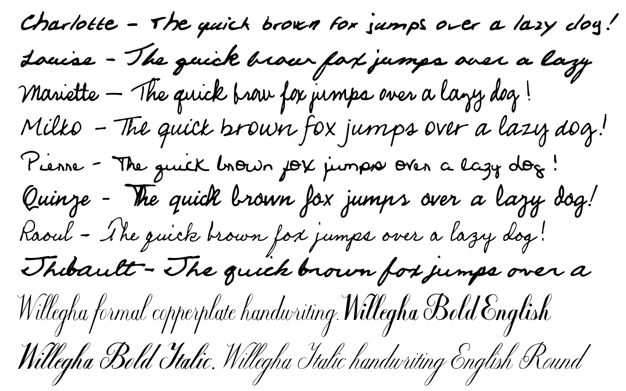 Charlotte - The quick brown fox jumps over a lazy dog!
Louise - The quick brown fox jumps over a lazy
Mariette — The quick brow fox jumps over a lazy dog!
Milko - The quick brown fox jumps over a lazy dog!
Pierre - The quick brown fox jumps over a lazy dog!
Quinze - The quick brown fox jumps over a lazy dog!
Raoul - The quick brown fox jumps over a lazy dog!
Thibault - The quick brown fox jumps over a
Willegha formal copperplate handwriting. Willegha Bold English
Willegha Bold Italic. Willegha Italic handwriting English Round